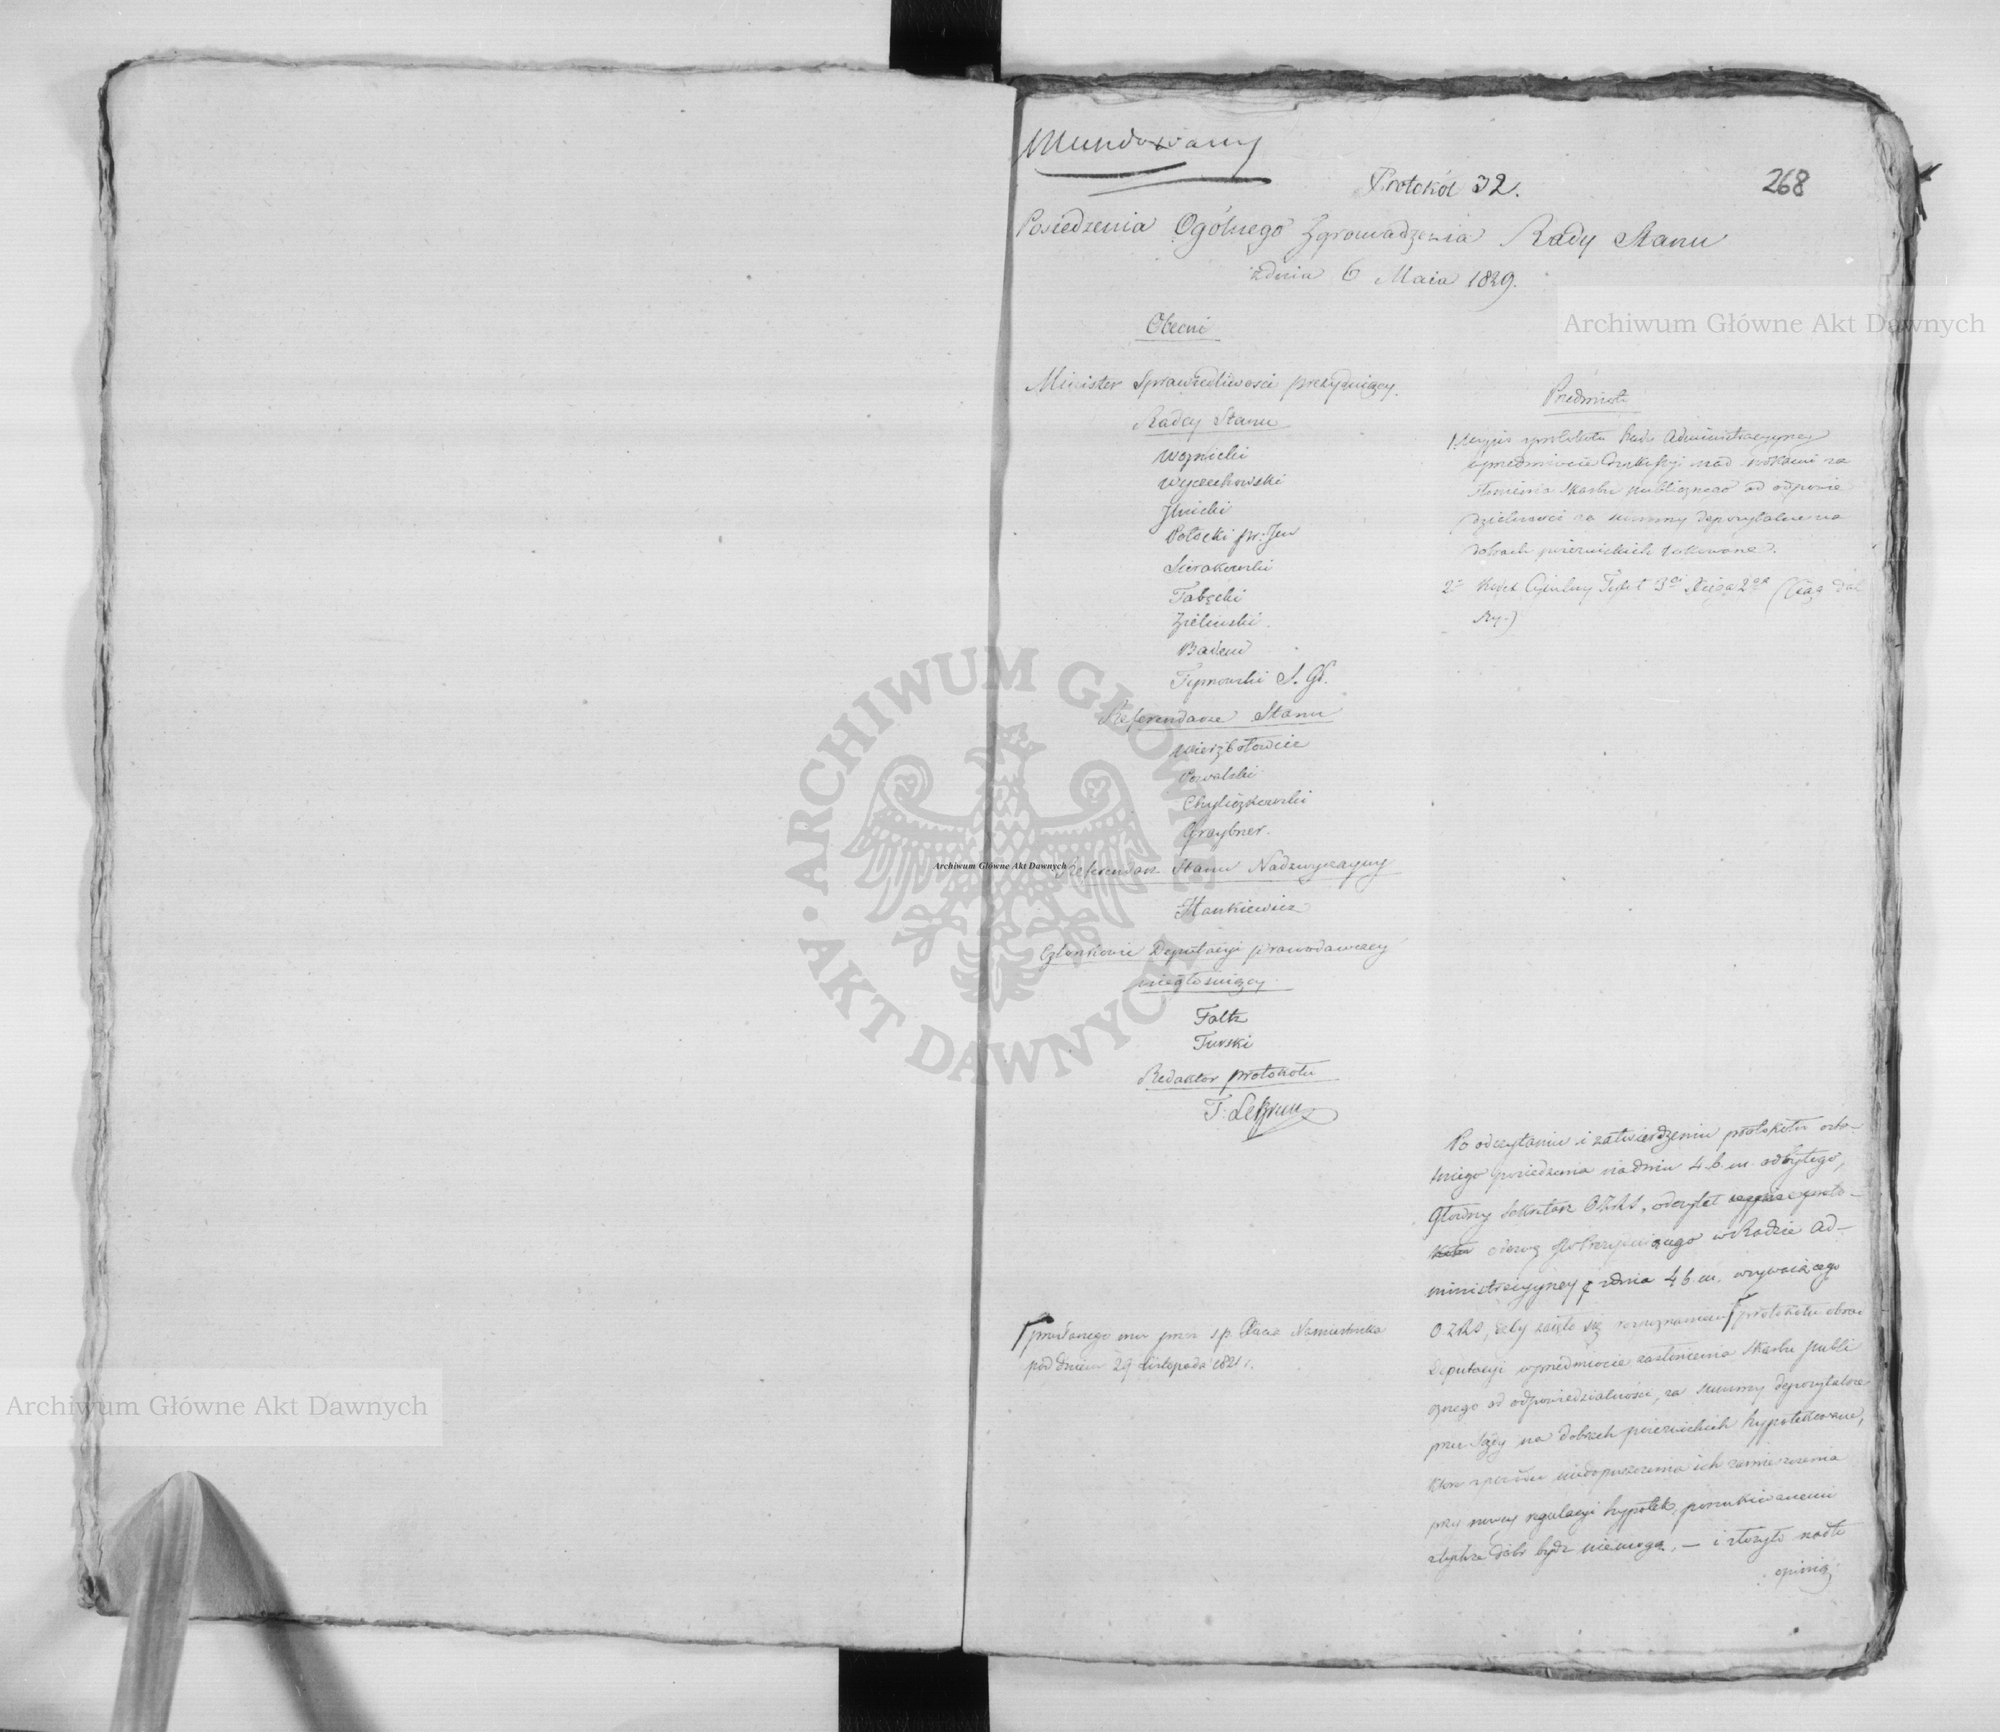 Mundowany
Protokół 32.
268
Posiedzenia Ogólnego Zgromadzenia Rady Stanu
zdnia 6 Maia 1829.
Obecni
Minister Sprawiedliwosci prezyduiący.
Radcy Stanu
Woznicki
Wyczechowski
Potocki
Sierakowski
Tabęcki
Zieliński.
Badeni
Tymowski S. G.
Referendarze Stanu
Wierzbołowicz
Kowalski
Chyliczkowski
Graybner.
Referendarz Stanu Nadzwyczayny
Stankiewicz
Członkowie Deputacyi prawodawczey
niegłosuiący.
Faltz
Turski
Redaktor protokołu
T. LeBrun
Przedmiot
protokołu Rady Administracyiney
wprzedmiocie nad za
słonienia Skarbu publicznego od odpowie
dzialności za summy depozytalne na
dobrach lokowane.
2° Kodex Cywilny Tytuł 3ci Xięga 2ga (Ciąg dal
szy.)
Po odczytaniu i zatwierdzeniu protokołu osta-
tniego posiedzenia wdniu 4 b. m. odbytego,
Głowny Sekretarz OZRS. odczytał
odezwę w Radzie Ad-
ministracyiney z dnia 4 b. m. wzywaiącego
OZRS, aby zaięło się rozpoznaniem protokołu obrad
Deputacyi wprzedmiocie zasłonienia Skarbu publi
cznego od odpowiedzialności, za summy depozytalne
przez Sądy na dobrach hypotekowane,
które niedopuszczenia ich zamieszczenia
przy nowey regulacyi hypotek, poszukiwanemi
ztychże dóbr bydź niemogą, — i złożyło nadto
opinią.
przesłanego mu przez s. p. Xięcia Namiestnika
pod dniem 29 Listopada 1821 r.
Archiwum Główne Akt Dawnych
Archiwum Główne Akt Dawnych
Archiwum Główne Akt Dawnych
ARCHIWUM GŁÓWNE • AKT DAWNYCH •